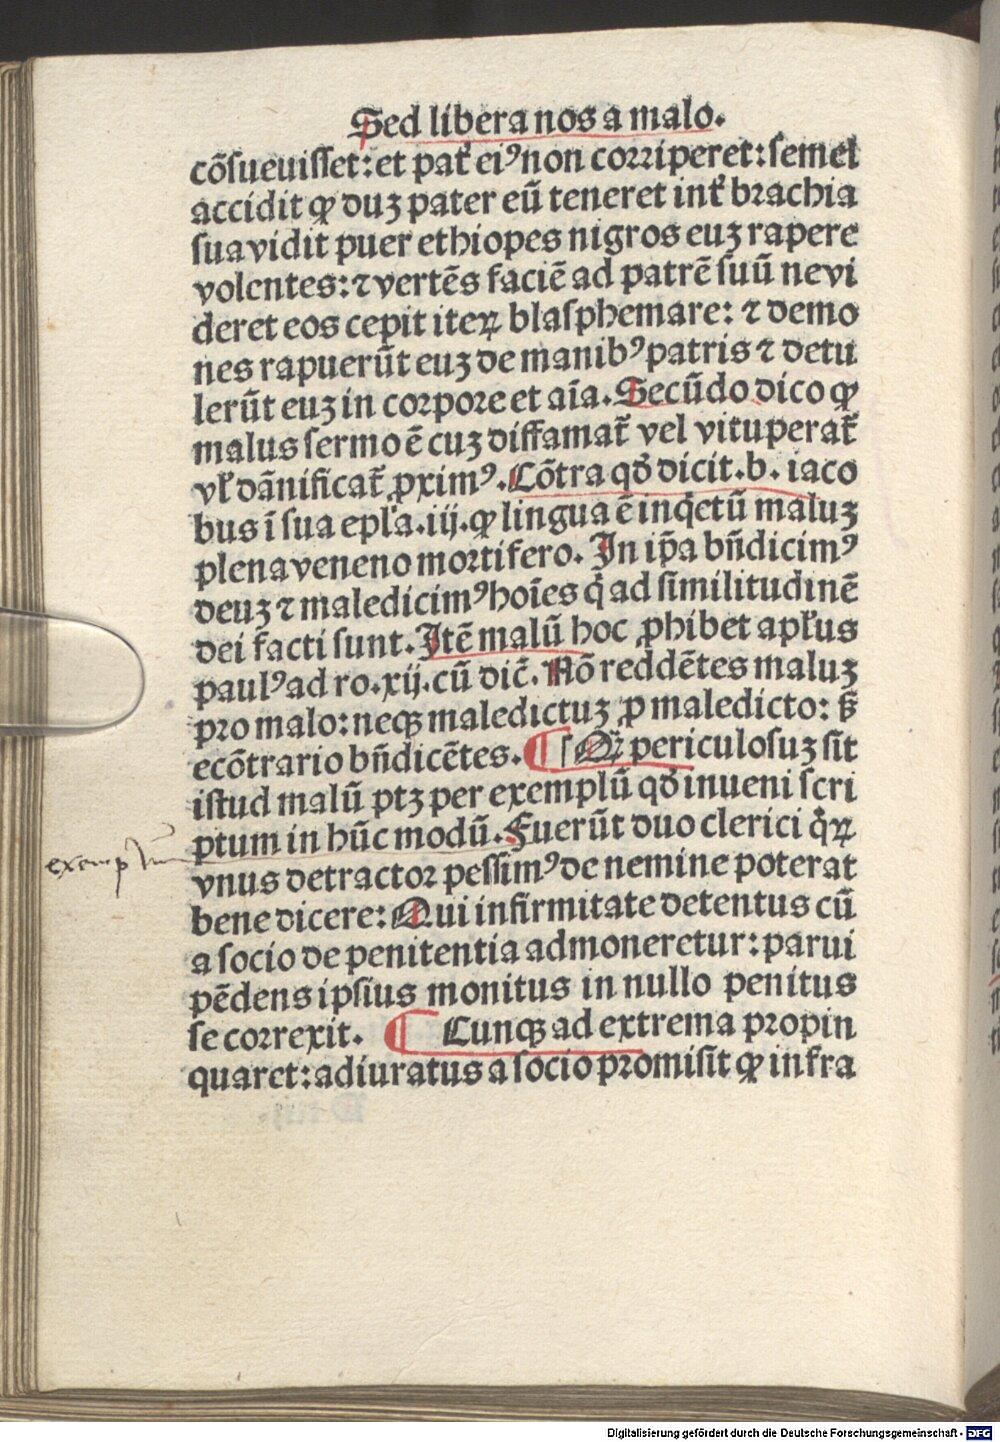 Sed libera nos a malo.
cõsueuisset: et pať eiꝰ non corriperet: semel
accidit ꝙ duʒ pater eũ teneret inť brachia
sua vidit puer ethiopes nigros euʒ rapere
volentes: ⁊ vertẽs faciẽ ad patrẽ suũ ne vi
deret eos cepit iteꝝ blasphemare: ⁊ demo
nes rapuerũt euʒ de manibꝰ patris ⁊ detu
lerũt euʒ in corpore et aĩa. Secũdo dico ꝙ
malus sermo ẽ cuʒ diffamať vel vituperať
vľ dãnificať ꝓximꝰ. Cõtra qđ dicit .b. iaco
bus ĩ sua epľa .iij. ꝙ lingua ẽ inq̇etũ maluʒ
plena veneno mortifero. In ip̃a bñdicimꝰ
deuʒ ⁊ maledicimꝰ hoĩes q̇ ad similitudinẽ
dei facti sunt. Itẽ malũ hoc ꝓhibet apľus
paulꝰ ad ro. xij. cũ dic̃. Nõ reddẽtes maluʒ
pro malo: neqʒ maledictuʒ ꝓ maledicto: sʒ
ecõtrario bñdicẽtes. ¶ Qʒ periculosuʒ sit
istud malũ ptʒ per exemplũ qđ inueni scri
ptum in hũc modũ. Fuerũt duo clerici q̇ꝝ
exemplum
vnus detractor pessimꝰ de nemine poterat
bene dicere: Qui infirmitate detentus cũ
a socio de penitentia admoneretur: parui
pẽdens ipsius monitus in nullo penitus
se correxit. ¶ Cunqʒ ad extrema propin
quaret: adiuratus a socio promisit ꝙ infra
Digitalisierung gefördert durch die Deutsche Forschungsgemeinschaft - DFG